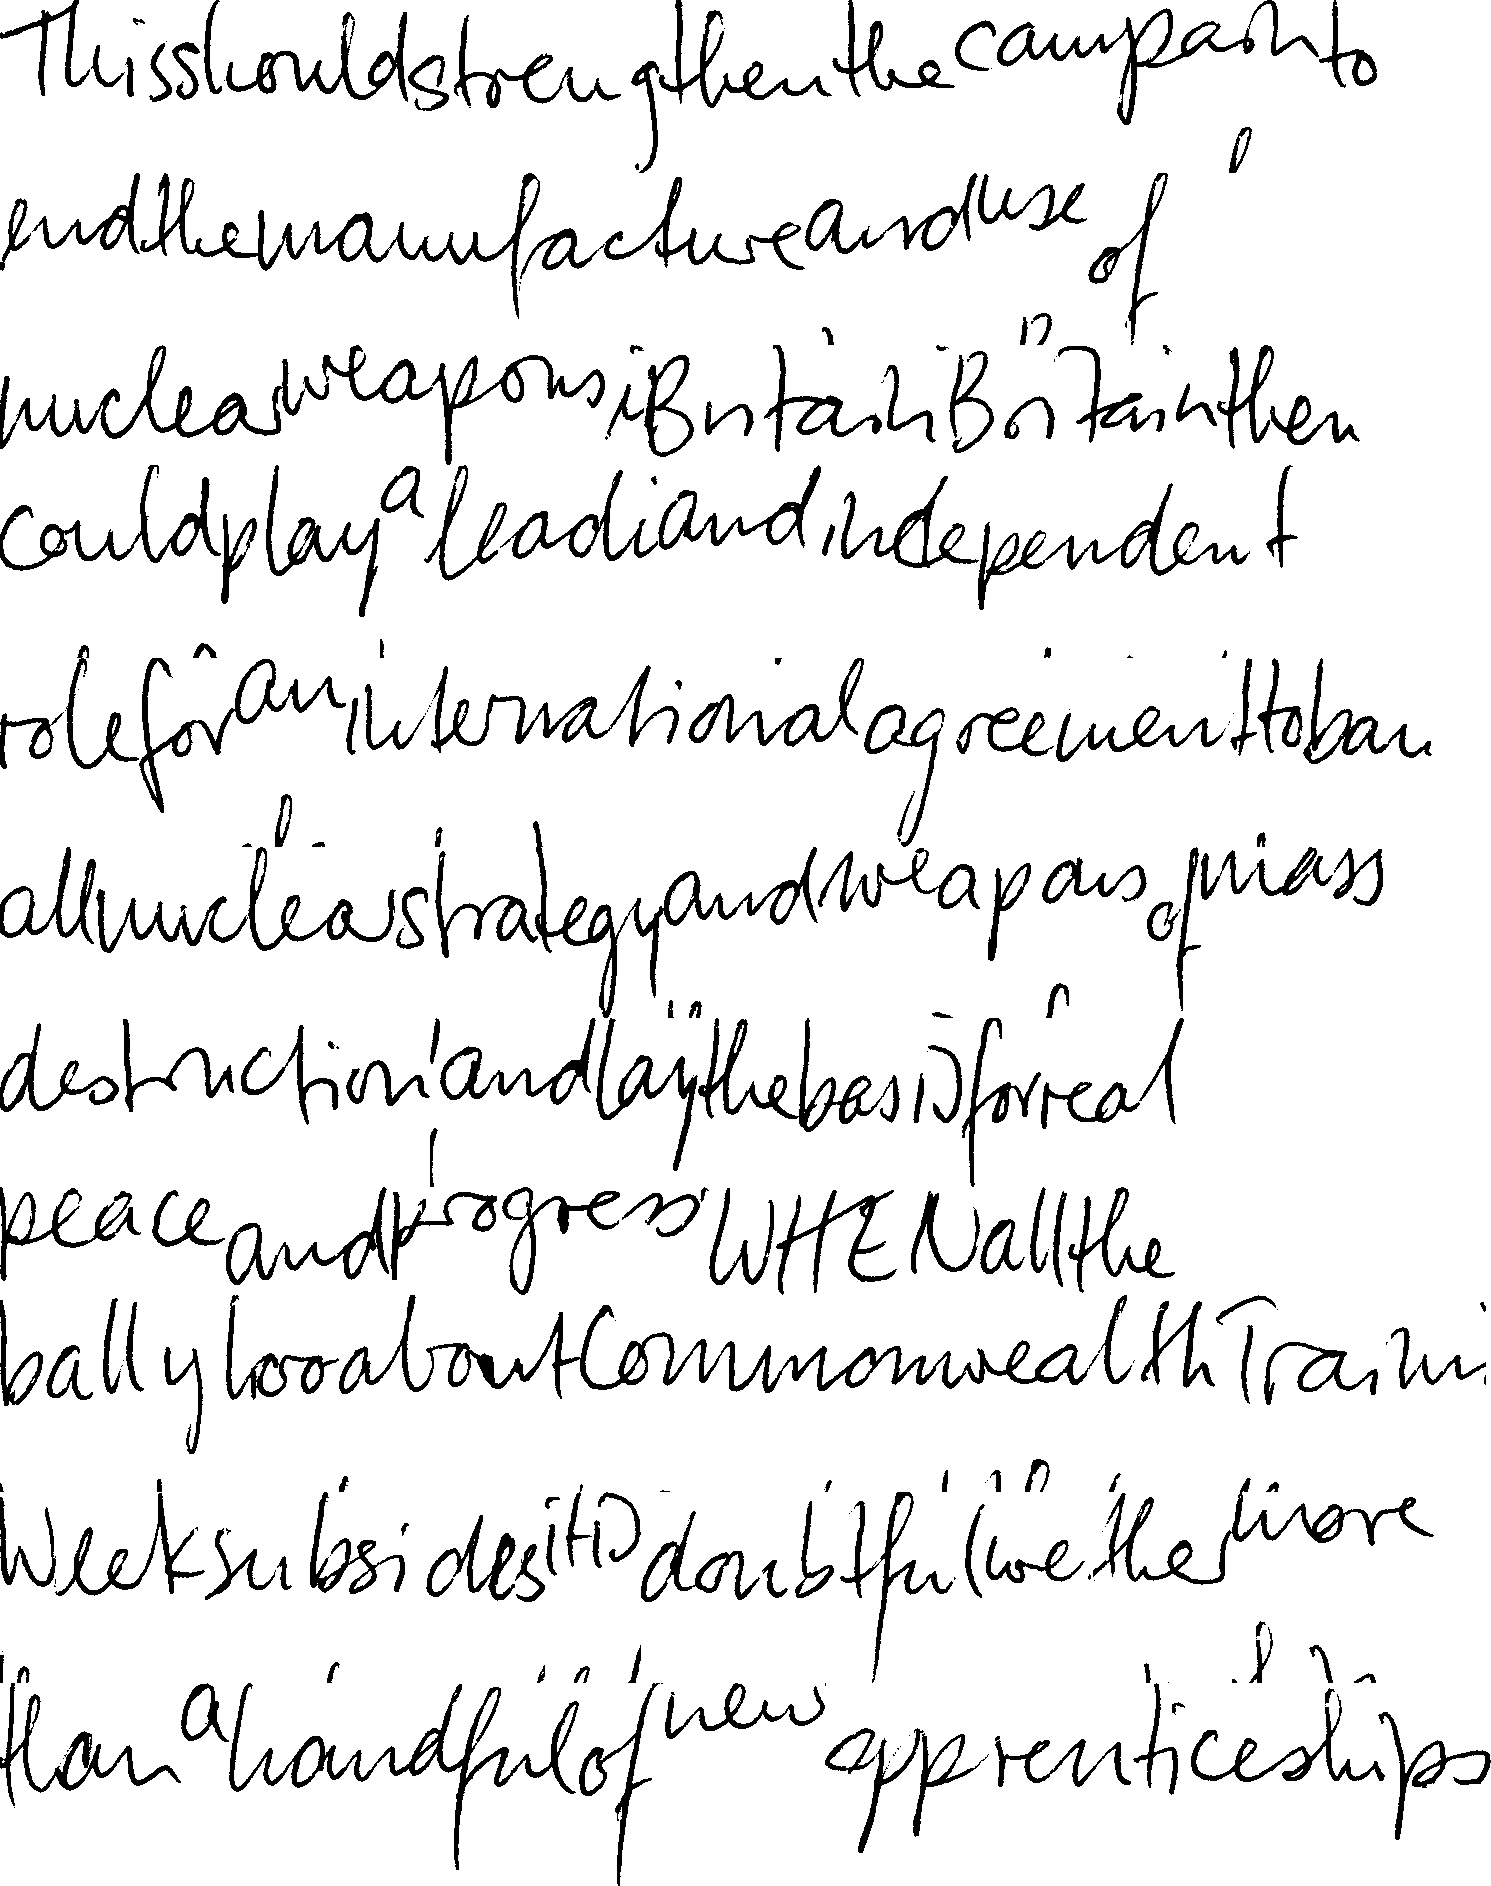 This should strengthen the campain to
end the manufacture and use of
nuclear weapons i Britain Britain then
could play a leadi and independent
role for an international agreement to ban
all nuclear strategy and weapons of mass
destruction and lay the basis for real
peace and progress WHEN all the
ballyhoo about Commonwealth Traini
Week subsides it is doubtful wether more
than a handful of new apprenticeships